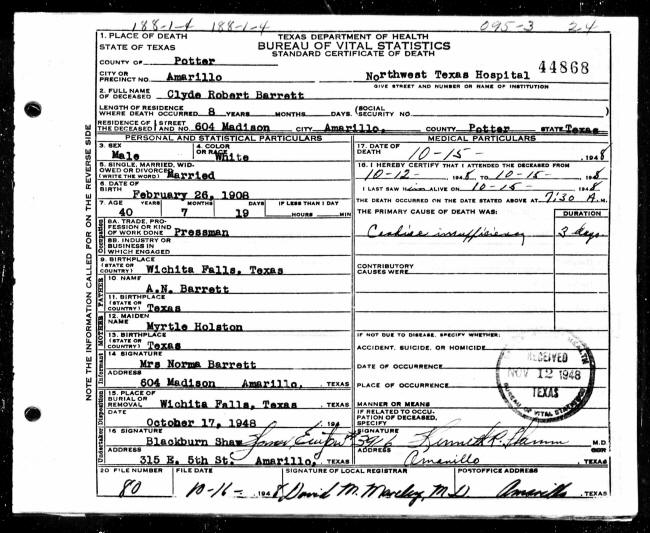 188-1-4 188-1-4 095-3 24
1. PLACE OF DEATH
STATE OF TEXAS
TEXAS DEPARTMENT OF HEALTH
BUREAU OF VITAL STATISTICS
STANDARD CERTIFICATE OF DEATH
COUNTY OF Potter
CITY OR PRECINCT NO. Amarillo
Northwest Texas Hospital 44868
GIVE STREET AND NUMBER OR NAME OF INSTITUTION
2. FULL NAME OF DECEASED Clyde Robert Barrett
LENGTH OF RESIDENCE WHERE DEATH OCCURRED 8 YEARS MONTHS DAYS (SOCIAL SECURITY NO. )
RESIDENCE OF THE DECEASED STREET AND NO. 604 Madison CITY Amarillo, COUNTY Potter STATE Texas
PERSONAL AND STATISTICAL PARTICULARS
3. SEX Male
4. COLOR OR RACE White
5. SINGLE, MARRIED, WIDOWED OR DIVORCED (WRITE THE WORD) Married
6. DATE OF BIRTH February 26, 1908
7. AGE YEARS MONTHS DAYS IF LESS THAN 1 DAY
40 7 19 HOURS MIN
8A. TRADE, PROFESSION OR KIND OF WORK DONE Pressman
8B. INDUSTRY OR BUSINESS IN WHICH ENGAGED
9. BIRTHPLACE (STATE OR COUNTRY) Wichita Falls, Texas
10. NAME A.N. Barrett
11. BIRTHPLACE (STATE OR COUNTRY) Texas
12. MAIDEN NAME Myrtle Holston
13. BIRTHPLACE (STATE OR COUNTRY) Texas
14 SIGNATURE Mrs Norma Barrett
ADDRESS 604 Madison Amarillo, TEXAS
15. PLACE OF BURIAL OR REMOVAL Wichita Falls, Texas, TEXAS
DATE October 17, 1948 194
16 SIGNATURE Blackburn Shaw 3916
ADDRESS 315 E. 5th St. Amarillo, TEXAS
MEDICAL PARTICULARS
17. DATE OF DEATH 10-15- 1948
18. I HEREBY CERTIFY THAT I ATTENDED THE DECEASED FROM
10-12- 1948 TO 10-15- 1948
I LAST SAW him ALIVE ON 10-15- 1948
THE DEATH OCCURRED ON THE DATE STATED ABOVE AT 7:30 A. M.
THE PRIMARY CAUSE OF DEATH WAS: DURATION
insufficiency 3 days
CONTRIBUTORY CAUSES WERE
IF NOT DUE TO DISEASE, SPECIFY WHETHER:
ACCIDENT, SUICIDE, OR HOMICIDE
DATE OF OCCURRENCE
PLACE OF OCCURRENCE
MANNER OR MEANS
IF RELATED TO OCCUPATION OF DECEASED, SPECIFY
RECEIVED
NOV 12 1948
TEXAS
BUREAU OF VITAL STATISTICS
SIGNATURE Kenneth R. M.D
ADDRESS Amarillo, TEXAS
20 FILE NUMBER FILE DATE SIGNATURE OF LOCAL REGISTRAR POSTOFFICE ADDRESS
80 10-16- 1948 David M. M.D. Amarillo, TEXAS
NOTE THE INFORMATION CALLED FOR ON THE REVERSE SIDE
Occupation
FATHER
MOTHER
Informant
Undertaker Disposition